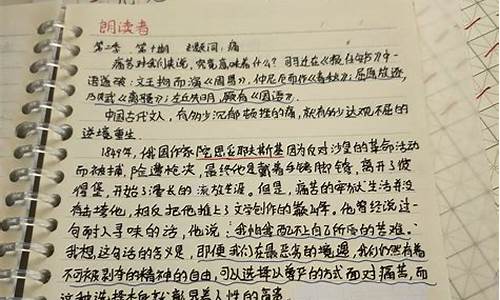 朗读者
第二季 第十期 主题词：痛
痛苦对我们来说，究竟意味着什么？司马迁在《报任安书》中一
语道破：文王拘而演《周易》，仲尼厄而作《春秋》；屈原放逐，
乃赋《离骚》；左丘失明，厥有《国语》.
中国古代文人，有多少沉郁顿挫的痛，就有多少达观不屈的
逆境重生.
1849年，俄国作家陀思妥耶夫斯基因为反对沙皇的革命活动
而被捕，险遭枪决，最终他是戴着手铐脚镣，离开了彼
得堡，开始了漫长的流放生涯。但是，痛苦的牢狱生活并没
有击垮他，相反把他推上了文学创作的巅峰。他曾经说过一
句耐人寻味的话，他说：我怕我配不上自己所受的苦难。
我想，这句话的含义是，即便我们在最恶劣的境遇，我们仍然有着
不可被剥夺的精神的自由，可以选择以尊严的方式面对痛苦，而
这种选择本身就彰显着人性的高贵